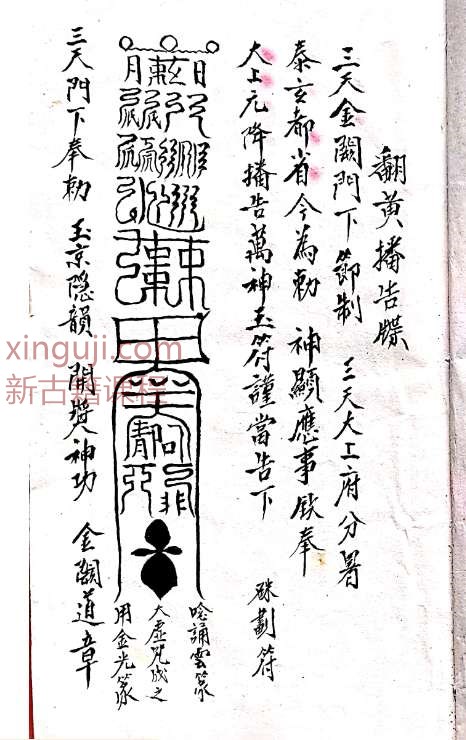 翻黄播告牒
三天金闕門下 節制 三天大上府分署
泰玄都省今為勅 神顯應事欽奉
太上元降播告萬神玉符謹當告下
硃劃符
唸誦雲篆
太虛咒成之
用金光篆
三天門下奉勅 玉京隱韻 開奬神功 金闕道章
xinguji.com
新古籍课程